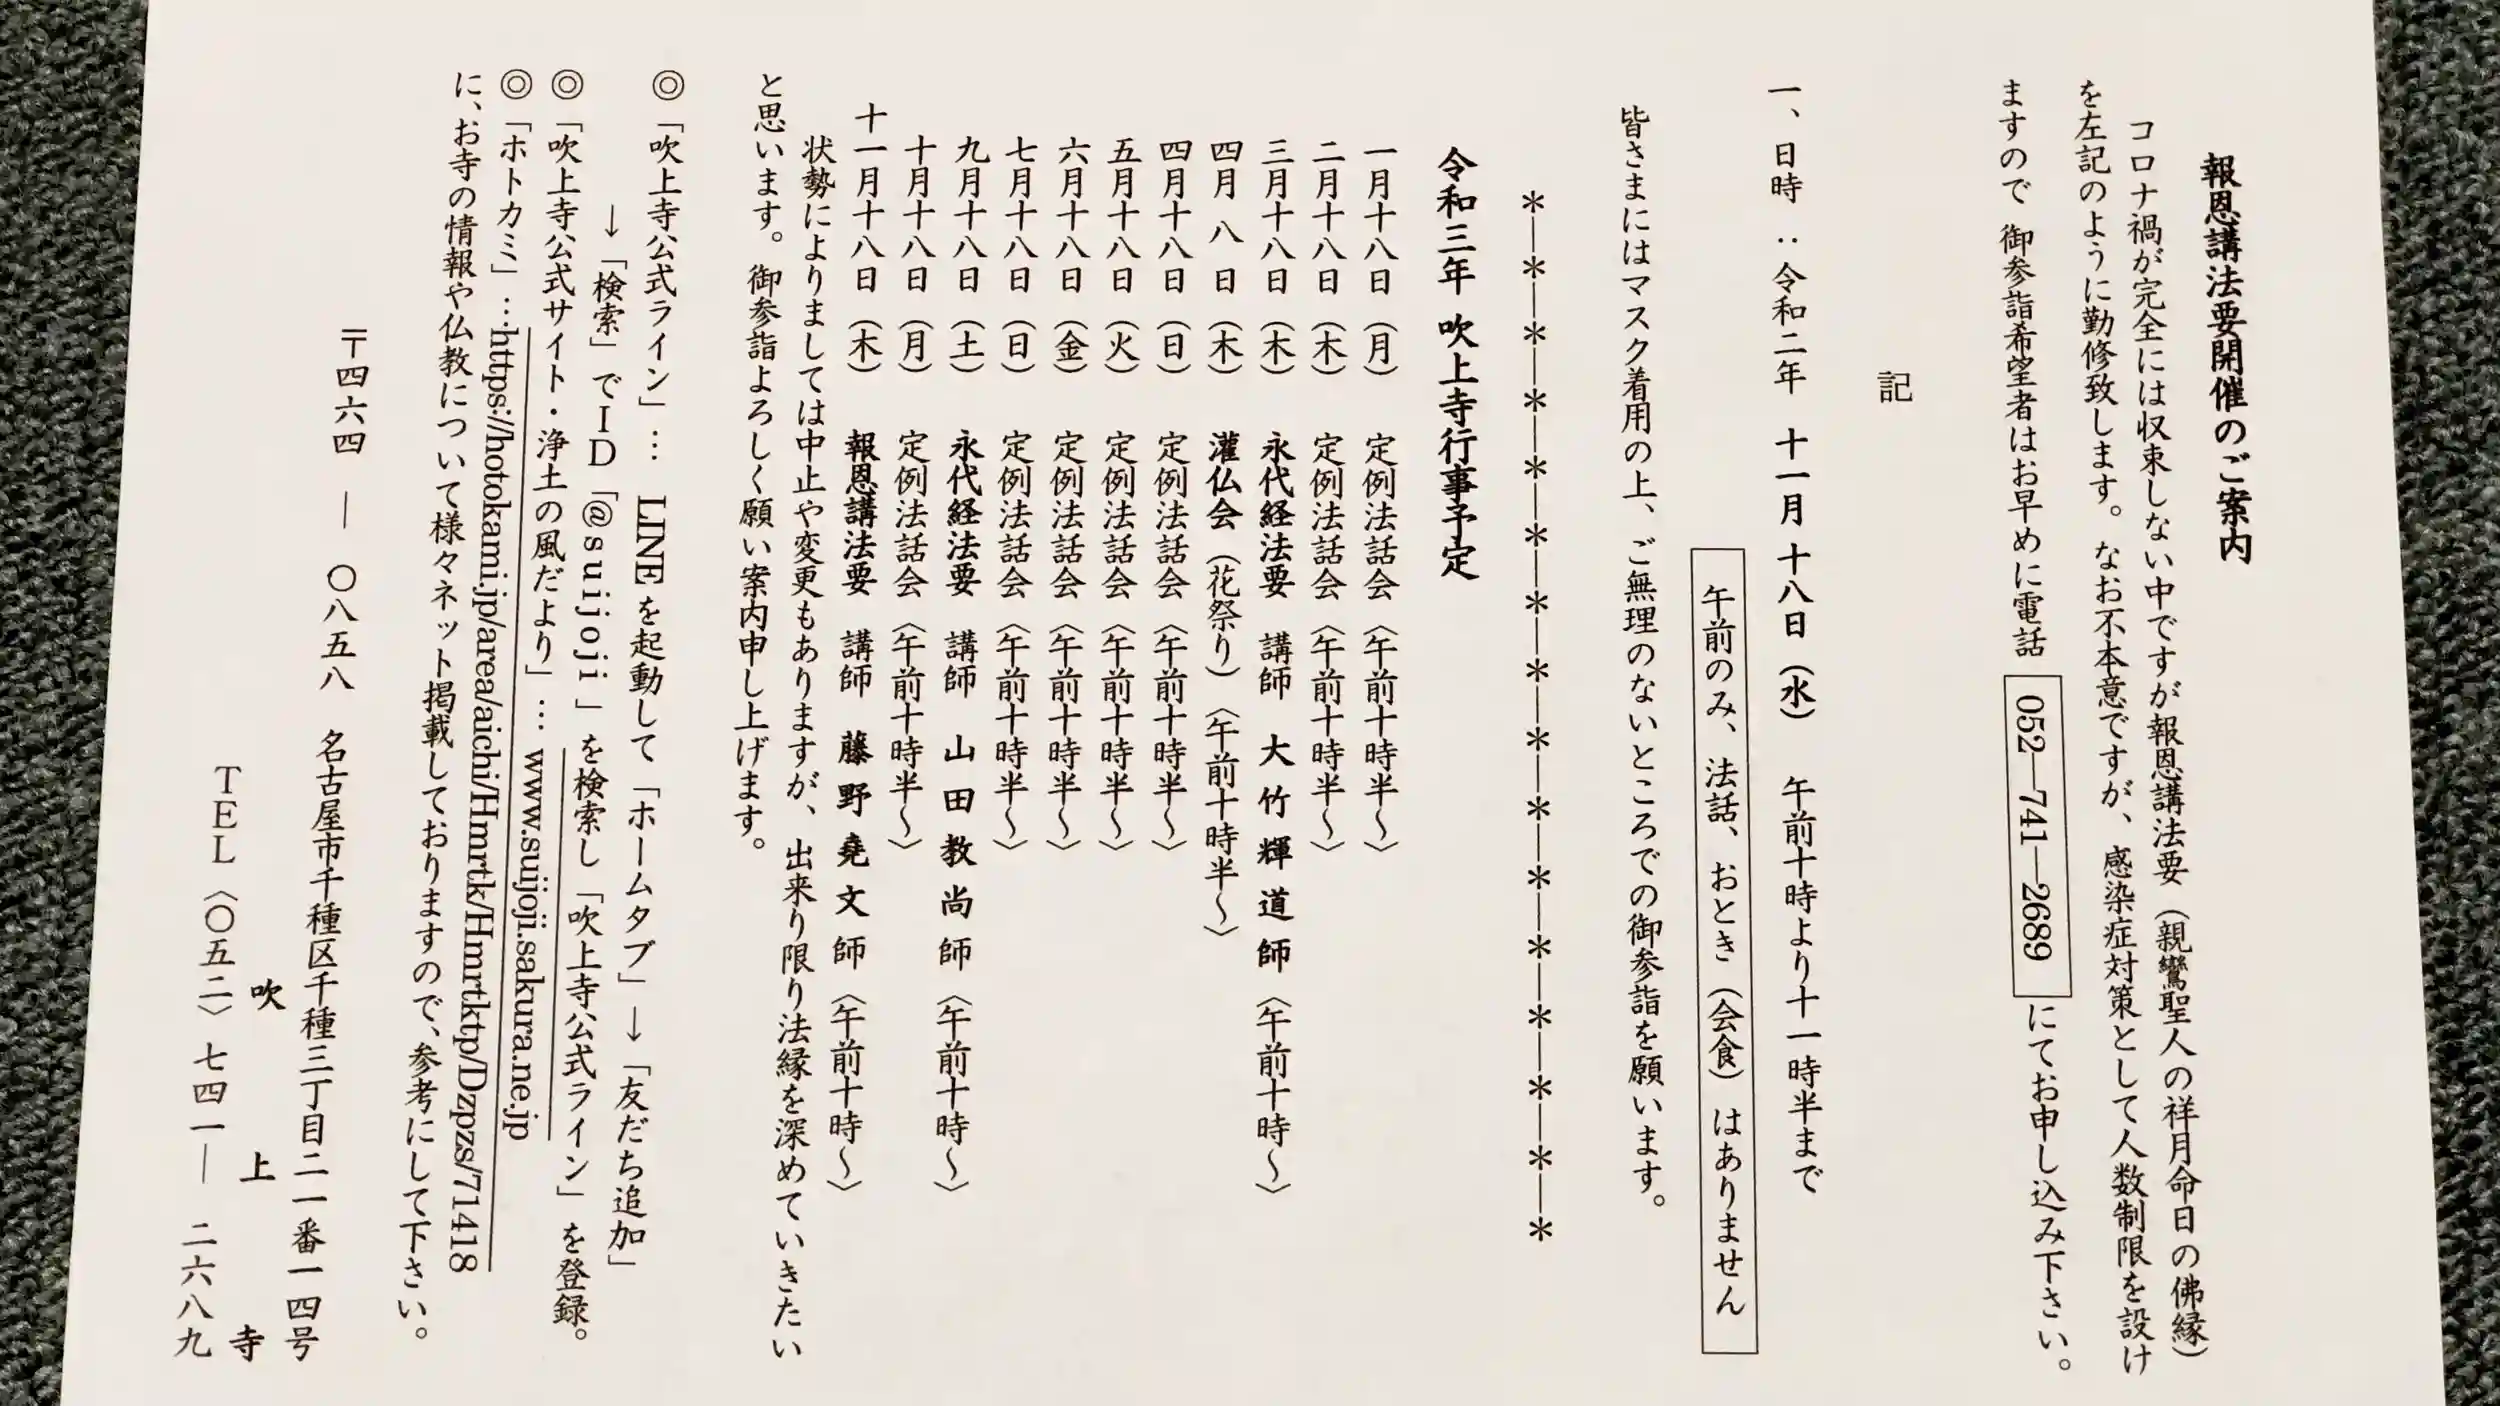 報恩講法要開催のご案内
コロナ禍が完全には収束しない中ですが報恩講法要（親鸞聖人の祥月命日の佛縁）
を左記のように勤修致します。なお不本意ですが、感染症対策として人数制限を設け
ますので 御参詣希望者はお早めに電話 052―741―2689 にてお申し込み下さい。
記
一、日時 ：令和二年 十一月十八日（水） 午前十時より十一時半まで
午前のみ、法話、おとき（会食）はありません
皆さまにはマスク着用の上、ご無理のないところでの御参詣を願います。
＊―＊―＊―＊―＊―＊―＊―＊―＊―＊―＊―＊―＊―＊―＊―＊
令和三年 吹上寺行事予定
一月十八日（月） 定例法話会〈午前十時半～〉
二月十八日（木） 定例法話会〈午前十時半～〉
三月十八日（木） 永代経法要 講師 大竹輝道師〈午前十時～〉
四月 八 日（木） 灌仏会（花祭り）〈午前十時半～〉
四月十八日（日） 定例法話会〈午前十時半～〉
五月十八日（火） 定例法話会〈午前十時半～〉
六月十八日（金） 定例法話会〈午前十時半～〉
七月十八日（日） 定例法話会〈午前十時半～〉
九月十八日（土） 永代経法要 講師 山田教尚師〈午前十時～〉
十月十八日（月） 定例法話会〈午前十時半～〉
十一月十八日（木） 報恩講法要 講師 藤野堯文師〈午前十時～〉
状勢によりましては中止や変更もありますが、出来り限り法縁を深めていきたい
と思います。御参詣よろしく願い案内申し上げます。
◎「吹上寺公式ライン」… LINEを起動して「ホームタブ」→「友だち追加」
→「検索」でＩＤ「@suijoji」を検索し「吹上寺公式ライン」を登録。
◎「吹上寺公式サイト・浄土の風だより」… www.suijoji.sakura.ne.jp
◎「ホトカミ」…https://hotokami.jp/area/aichi/Hmrtk/Hmrtktp/Dzpzs/71418
に、お寺の情報や仏教について様々ネット掲載しておりますので、参考にして下さい。
〒四六四 ― 〇八五八 名古屋市千種区千種三丁目二一番一四号
吹 上 寺
ＴＥＬ〈〇五二〉七四一― 二六八九